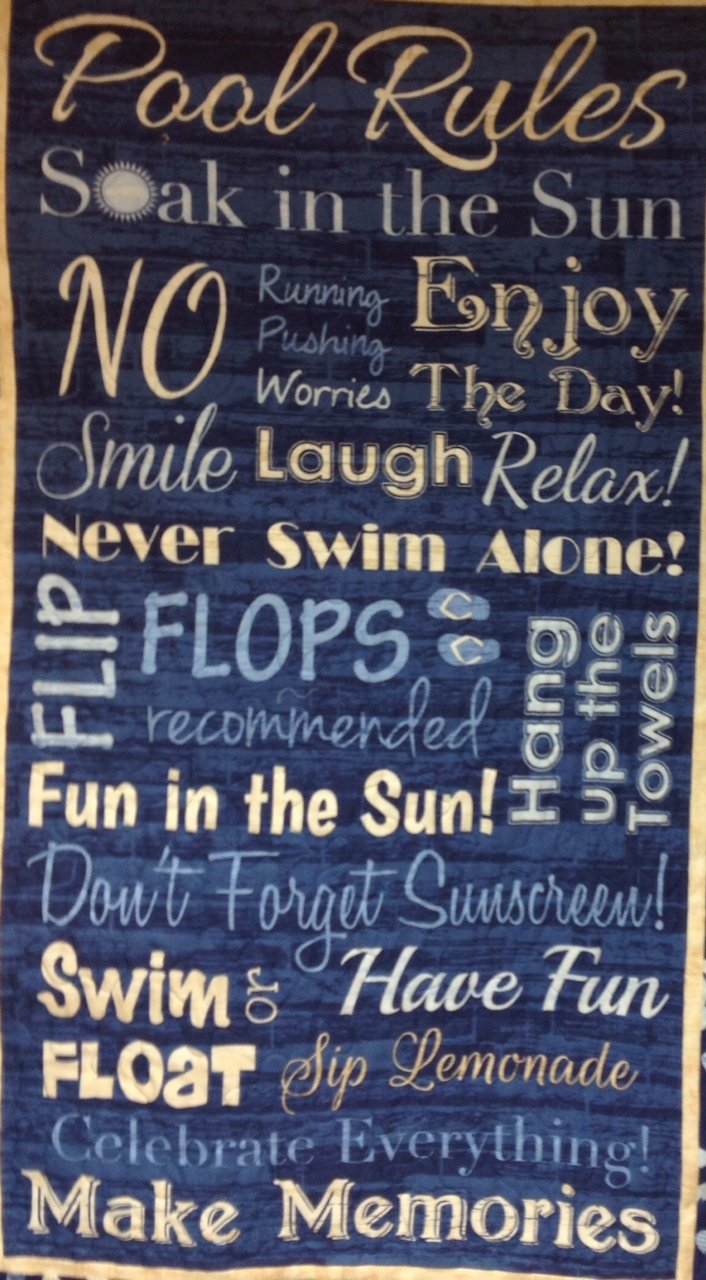 Pool Rules
Soak in the Sun
NO
Running
Pushing
Worries
Enjoy
The Day!
Smile Laugh Relax!
Never Swim Alone!
FLIP
FLOPS
recommended
Hang
up the
Towels
Fun in the Sun!
Don't Forget Sunscreen!
Swim or
FLOaT
Have Fun
Sip Lemonade
Celebrate Everything!
Make Memories